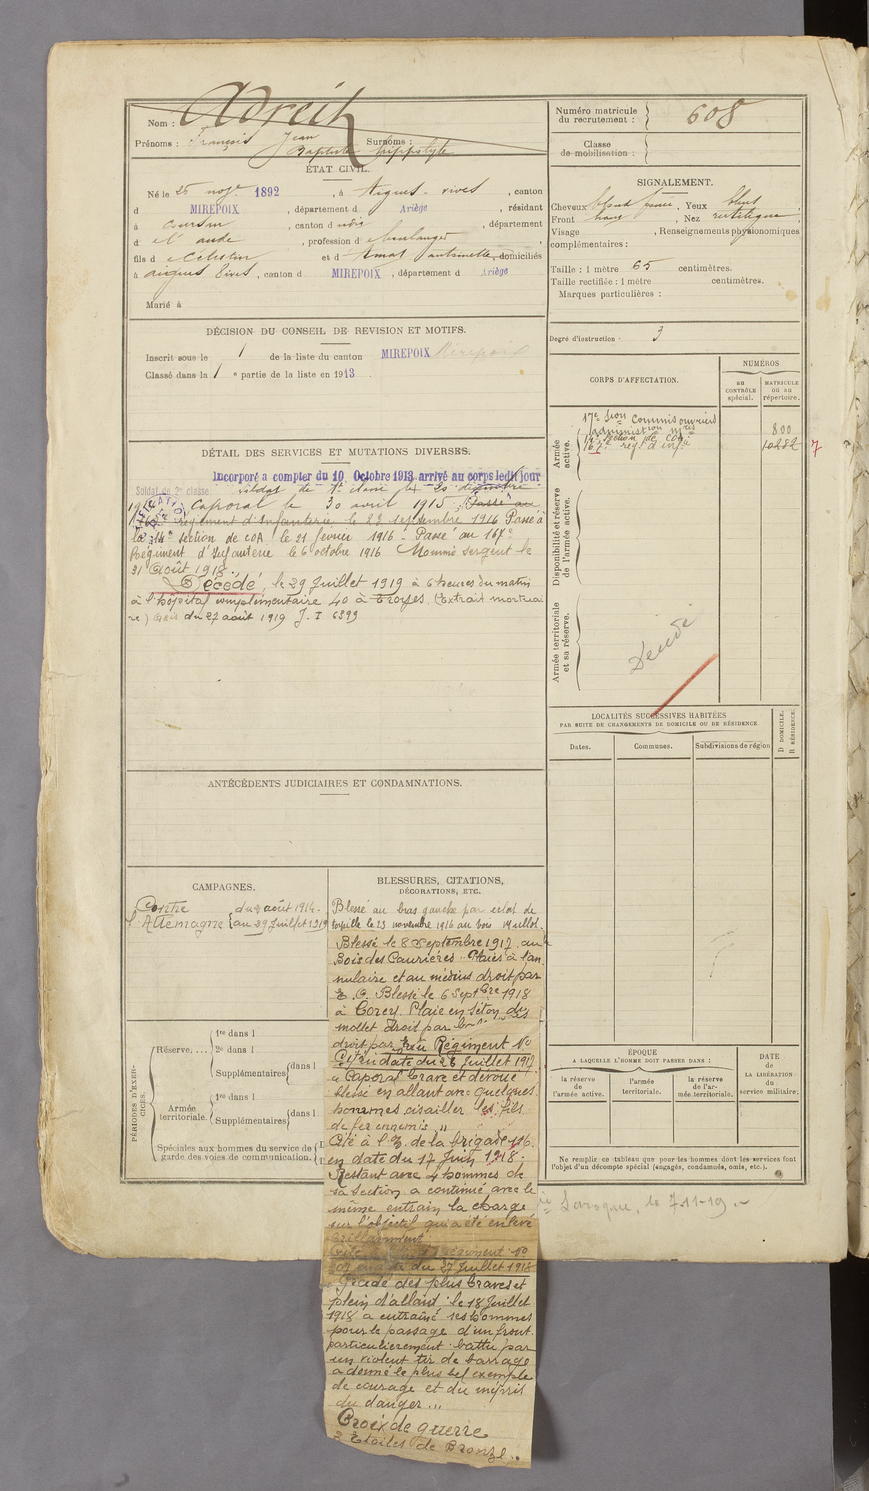 Nom : Adreit
Prénoms : François Jean Surnoms :
Baptiste hippolyte
ÉTAT CIVIL.
Né le 25 nov 1892, à Aigues-vives, canton
d MIREPOIX, département d Ariège, résidant
à Coursan, canton d, département
d l'aude, profession d boulanger,
fils d Célestin et d Amat antoinette, domiciliés
à aigues vives, canton d MIREPOIX, département d Ariège
Marié à
DÉCISION DU CONSEIL DE REVISION ET MOTIFS.
Inscrit sous le 1 de la liste du canton MIREPOIX Mirepoix
Classé dans la 1 e partie de la liste en 1913.
DÉTAIL DES SERVICES ET MUTATIONS DIVERSES.
Incorporé a compter du 10 Octobre 1913 arrivé au corps ledit jour
Soldat de 2e classe soldat de 1e classe le 20
Caporal le 30 avril 1915, Passé au
régiment d'Infanterie le 22 septembre 1916 Passé à
la 14e section de COA le 21 février 1916 - Passé au 167e
Régiment d'Infanterie le 6 octobre 1916 Nommé sergent le
21 Août 1918.
Décédé, le 29 Juillet 1919 à 6 heures du matin
à l'hôpital complémentaire 40 à Troyes. (Extrait mortuai
re) du 27 août 1919 J. I 6399
ANTÉCÉDENTS JUDICIAIRES ET CONDAMNATIONS.
CAMPAGNES.
Contre l'Allemagne { du 2 août 1914 - au 29 Juillet 1919
PÉRIODES D'EXERCICES.
Réserve.... 1re dans l
2e dans l
Supplémentaires { dans l
Armée territoriale. 1re dans l
Supplémentaires { dans l
Spéciales aux hommes du service de
garde des voies de communication.
BLESSURES, CITATIONS,
DÉCORATIONS, ETC.
Blessé au bras gauche par eclat de
torpille le 23 novembre 1916 au bois
Blessé le 8 Septembre 1917 au
Bois des Caurières "Plaies à l'an
nulaire et au médius droit par
E. O. Blessé le 6 Septbre 1918
à Corcy. Plaie en séton du
mollet droit par
droit par Régiment No
en date du 26 Juillet 1917
" Caporal brave et dévoué
blessé en allant avec quelques
hommes cisailler les fils
de fer ennemis „
Cité à l'O. de la brigade 116.
en date du 17 Juin 1918.
Restant avec 4 hommes de
sa section a continué avec le
même entrain la charge
sur l'objectif qui a été enlevé
brillamment
Cité Régiment No
en date du 27 Juillet 1918
" Gradé des plus braves et
plein d'allant : le 18 Juillet
1918 a entrainé ses hommes
pour le passage d'un front
particulièrement battu par
un violent tir de barrage
a donné le plus bel exemple
de courage et du mépris
du danger ...
Croix de guerre
2 Etoiles de Bronze.
Numéro matricule
du recrutement : 608
Classe
de mobilisation :
SIGNALEMENT.
Cheveux blond foncé, Yeux bleus,
Front, Nez rectiligne,
Visage, Renseignements physionomiques
complémentaires :
Taille : 1 mètre 65 centimètres.
Taille rectifiée : 1 mètre centimètres.
Marques particulières :
Degré d'instruction · 3
CORPS D'AFFECTATION.
NUMÉROS
AU CONTRÔLE spécial.
MATRICULE ou au répertoire.
Armée active.
17e Son Commis ouvriers
administration mres 800
14e section de COA
167e regt d'infie 10282 7
Disponibilité et réserve de l'armée active.
Armée territoriale et sa réserve.
LOCALITÉS SUCCESSIVES HABITÉES
PAR SUITE DE CHANGEMENTS DE DOMICILE OU DE RÉSIDENCE
Dates. Communes. Subdivisions de région D DOMICILE. R RÉSIDENCE.
ÉPOQUE
A LAQUELLE L'HOMME DOIT PASSER DANS :
la réserve de l'armée active. l'armée territoriale. la réserve de l'armée territoriale.
DATE
DE LA LIBÉRATION
du
service militaire.
Ne remplir ce tableau que pour les hommes dont les services font
l'objet d'un décompte spécial (engagés, condamnés, omis, etc.).
Laroque, le 7-11-19. -